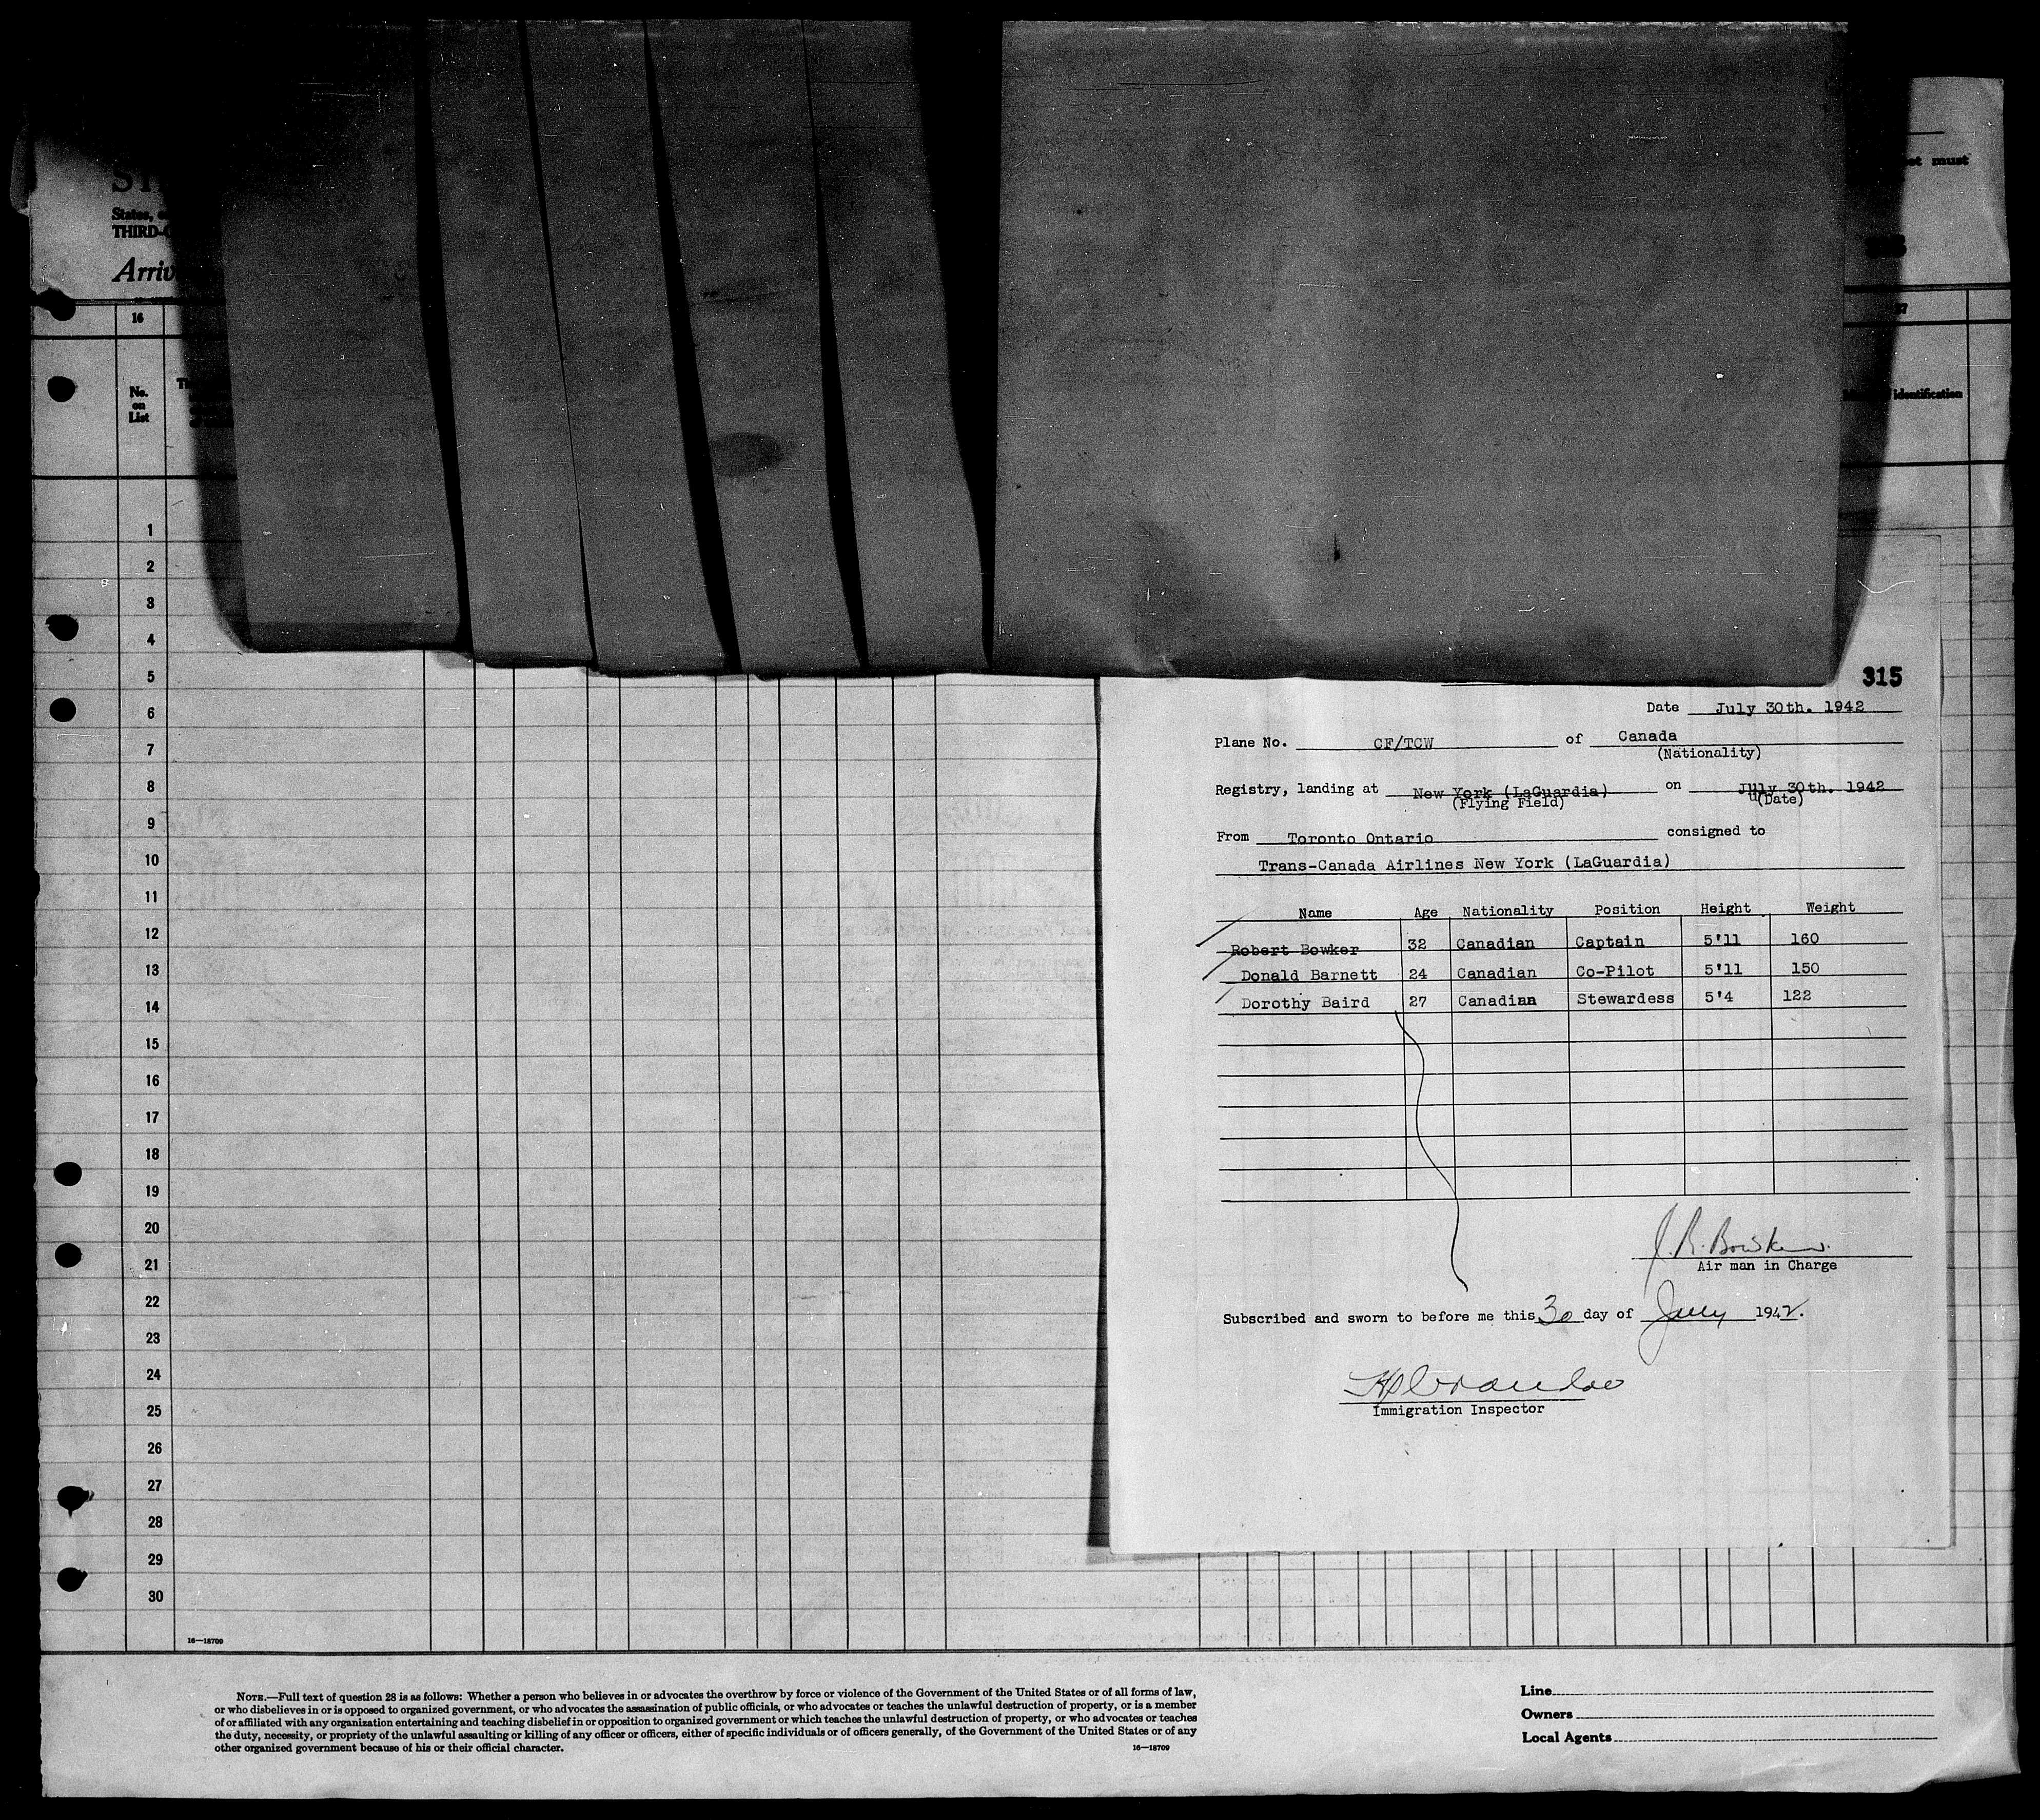 ST
States, o
THIRD-C
Arriv
et must
16
No.
on
List
identification
1
2
3
4
5
6
7
8
9
10
11
12
13
14
15
16
17
18
19
20
21
22
23
24
25
26
27
28
29
30
16—18709
315
Date July 30th. 1942
Plane No. CF/TCW of Canada
(Nationality)
Registry, landing at New York (LaGuardia) on July 30th. 1942
(Flying Field) (Date)
From Toronto Ontario consigned to
Trans-Canada Airlines New York (LaGuardia)
Name Age Nationality Position Height Weight
Robert Bowker 32 Canadian Captain 5'11 160
Donald Barnett 24 Canadian Co-Pilot 5'11 150
Dorothy Baird 27 Canadian Stewardess 5'4 122
J. R. Bowker.
Air man in Charge
Subscribed and sworn to before me this 30 day of July 1942.
Immigration Inspector
NOTE.—Full text of question 28 is as follows: Whether a person who believes in or advocates the overthrow by force or violence of the Government of the United States or of all forms of law,
or who disbelieves in or is opposed to organized government, or who advocates the assassination of public officials, or who advocates or teaches the unlawful destruction of property, or is a member
of or affiliated with any organization entertaining and teaching disbelief in or opposition to organized government or which teaches the unlawful destruction of property, or who advocates or teaches
the duty, necessity, or propriety of the unlawful assaulting or killing of any officer or officers, either of specific individuals or of officers generally, of the Government of the United States or of any
other organized government because of his or their official character.
16—18709
Line
Owners
Local Agents